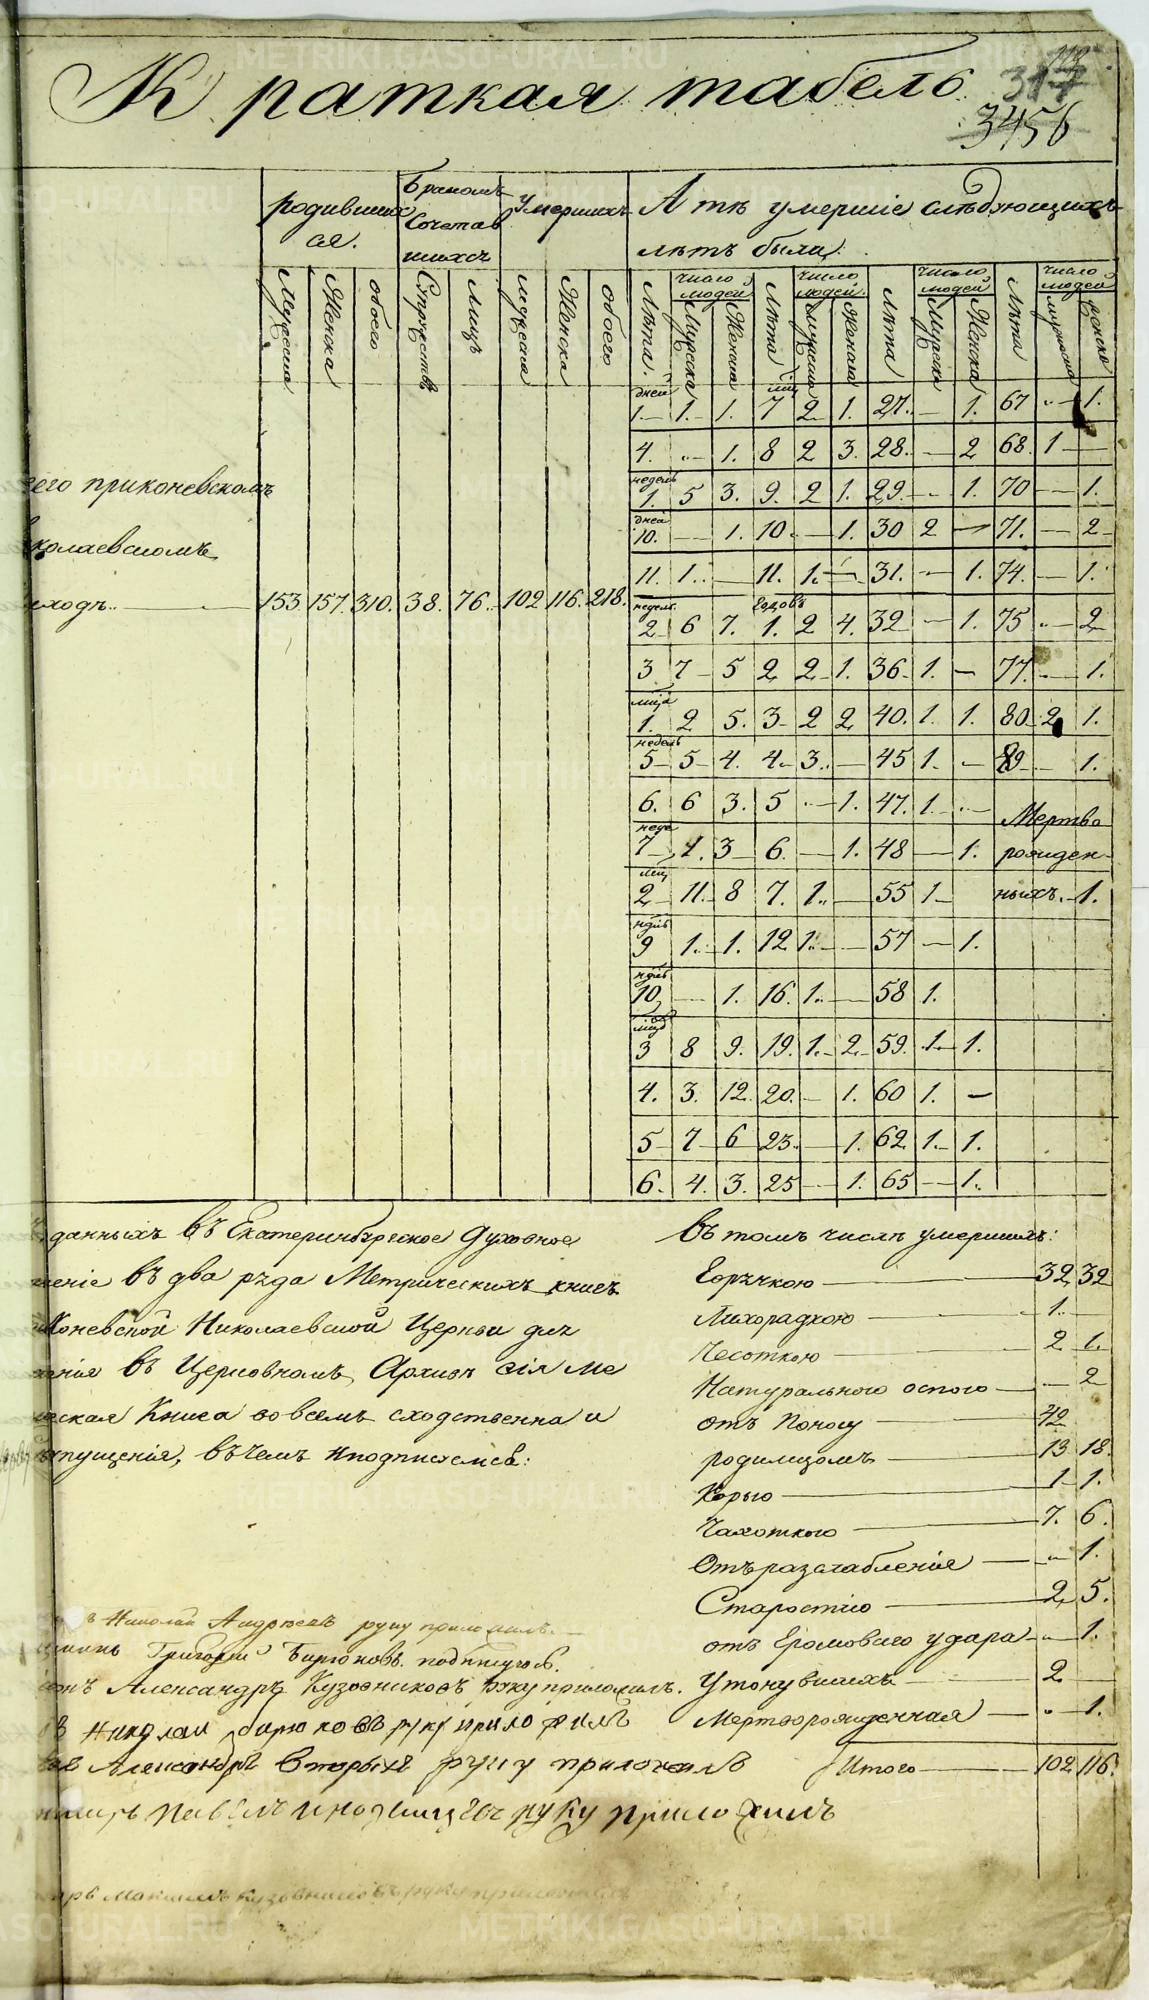 Краткая табель
3456
родивших
ся.
Бракомъ
Сочетав
шихся
Умершихъ
А тѣ умершіе слѣдующихъ
лѣтъ были:
Мужска Женска обоего Супружествъ лицъ мужска Женска обоего
Лѣта. число людей Мужска Женска Лѣта число людей. мужска Женска Лѣта число людей Мужска Женска Лѣта число людей мужска женска
дней 1. 1. 1. мц 7 2 1. 27. — 1. 67 — 1.
4. — 1. 8 2 3. 28. — 2 68. 1 —
недель 1. 5 3. 9. 2 1. 29. — 1. 70 — 1.
дней 10. — 1. 10 — 1. 30 2 — 71. — 2
11. 1. — 11. 1. — 31. — 1. 74. — 1.
недель 2 6 7. Годовъ 1. 2 4. 32 — 1. 75 — 2
3 7 5 2 2 1. 36. 1. — 77. — 1.
мцъ 1. 2 5. 3 2 2 40. 1. 1. 80. 2 1.
недель 5 5 4. 4 3. — 45 1. — 89 — 1.
6. 6 3. 5 — 1. 47. 1. —
неде 7 1. 3 6. — 1. 48 — 1.
мц 2 11. 8 7. 1. — 55 1.
ндль 9 1. 1. 12 1. — 57 — 1.
ндль 10. — 1. 16. 1. — 58 1.
мцо 3 8 9. 19. 1. 2. 59. 1. 1.
4. 3. 12. 20. — 1. 60 1. —
5 7 6 23. — 1. 62 1. 1.
6. 4. 3. 25 — 1. 65 — 1.
Мертво
рожден
ныхъ. 1.
его приконевскомъ
колаевскомъ
иходѣ. — 153. 157. 310. 38. 76. 102 116. 218.
данныхъ въ Екатеринбургское Духовное
еніе въ два ряда Метрическихъ книгъ
Коневской Николаевской Церкви для
еніе въ Церковномъ Архивѣ сія Ме
еская Книга во всемъ сходственна и
пущенія, въ чемъ и подписуемся:
ъ Николай Андреевъ руку приложилъ.
Григорій Бирюковъ. подписуюсь.
Александръ Кузовниковъ руку приложилъ.
Николаи бирюковъ руку приложилъ
Александръ Вторыхъ руку приложилъ
руку приложилъ
Максимъ Кузовниковъ руку приложилъ
въ томъ числѣ умершихъ:
Горячкою — 32 32
Лихорадкою — 1. —
Чесоткою — 2 1.
Натуральною оспою — 2
отъ Поносу — 42
родимцомъ — 13 18.
Корью — 1 1.
Чахоткою — 7. 6.
Отъ разслабленія — 1.
Старостію — 2 5.
отъ Громоваго удара — 1.
Утонувшихъ — 2
Мертворожденная — 1.
Итого — 102 116.
METRIKI.GASO-URAL.RU